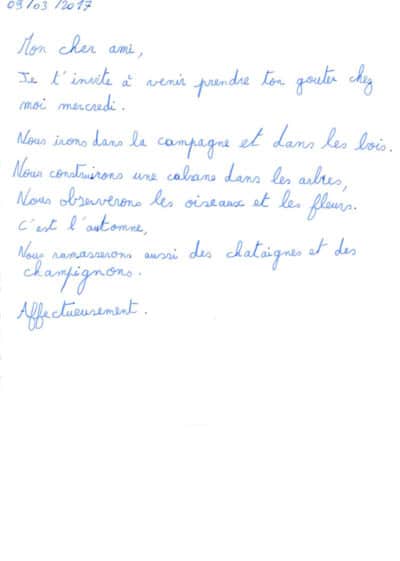 09/03/2017
Mon cher ami,
Je t'invite à venir prendre ton gouter chez
moi mercredi.
Nous irons dans la campagne et dans les bois.
Nous construirons une cabane dans les arbres,
Nous observerons les oiseaux et les fleurs.
C'est l'automne,
Nous ramasserons aussi des chataignes et des
champignons.
Affectueusement.